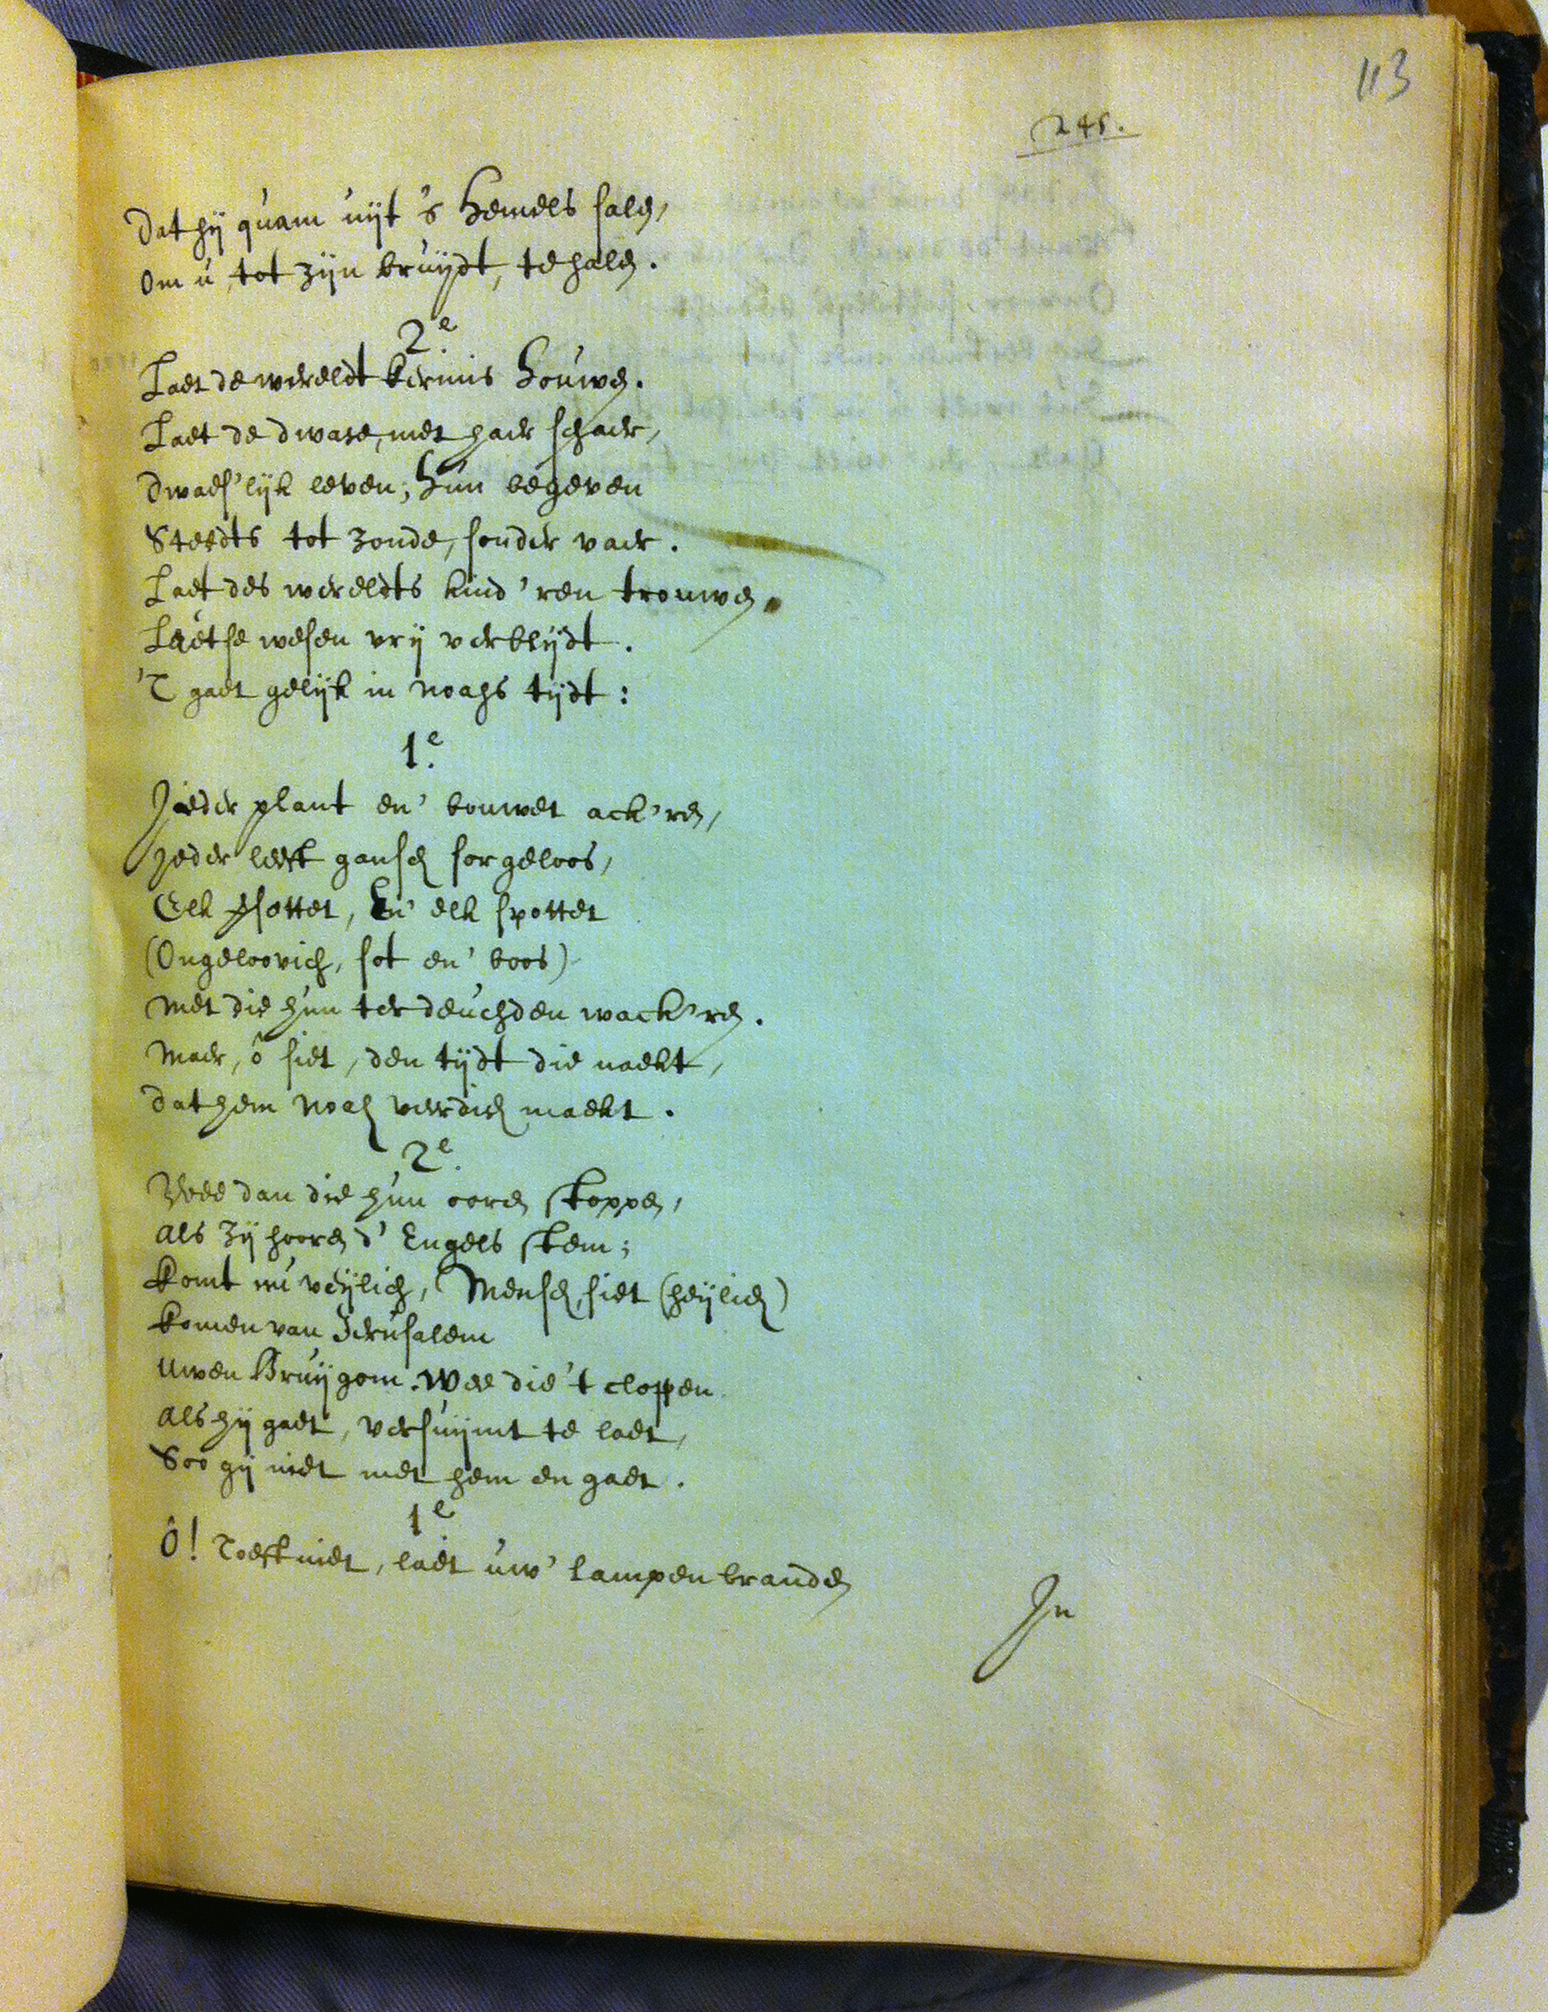 113
245.
Dat hÿ quam uijt 's Hemels salen,
Om u, tot zijn bruijdt, te halen.
2e.
Laet de wereldt kermis houwen.
Laet de dwase, met haer schaer,
Dwaes'lijk leven; hun begeven
Steedts tot zonde, sonder vaer.
Laet des wereldts kind'ren trouwen,
Laetse wesen vrij verblijdt.
'T gaet gelijk in Noahs tijdt:
1e.
Jeder plant en' bouwet ack'ren,
Jeder leeft gansch sorgeloos,
Elk sottet, En' elk spottet
(Ongeloovich, sot en' boos)
Met die hun ter deuchden wack'ren.
Maer, ô siet, den tijdt die naekt,
Dat hem Noach veerdich maekt.
2e.
Wee dan die hun ooren stoppen,
Als zij hooren d' Engels stem;
Komt nu veijlich, Mensch, siet (heijlich)
Komen van Jerusalem
Uwen Bruijgom. Wee die 't cloppen
Als hij gaet, versuijmt te laet,
Soo gij niet met hem en gaet.
1e
Ô! Toeft niet, laet uw' lampen branden
In